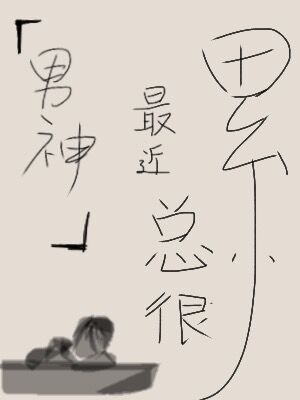 「男神」
最近
总很
累